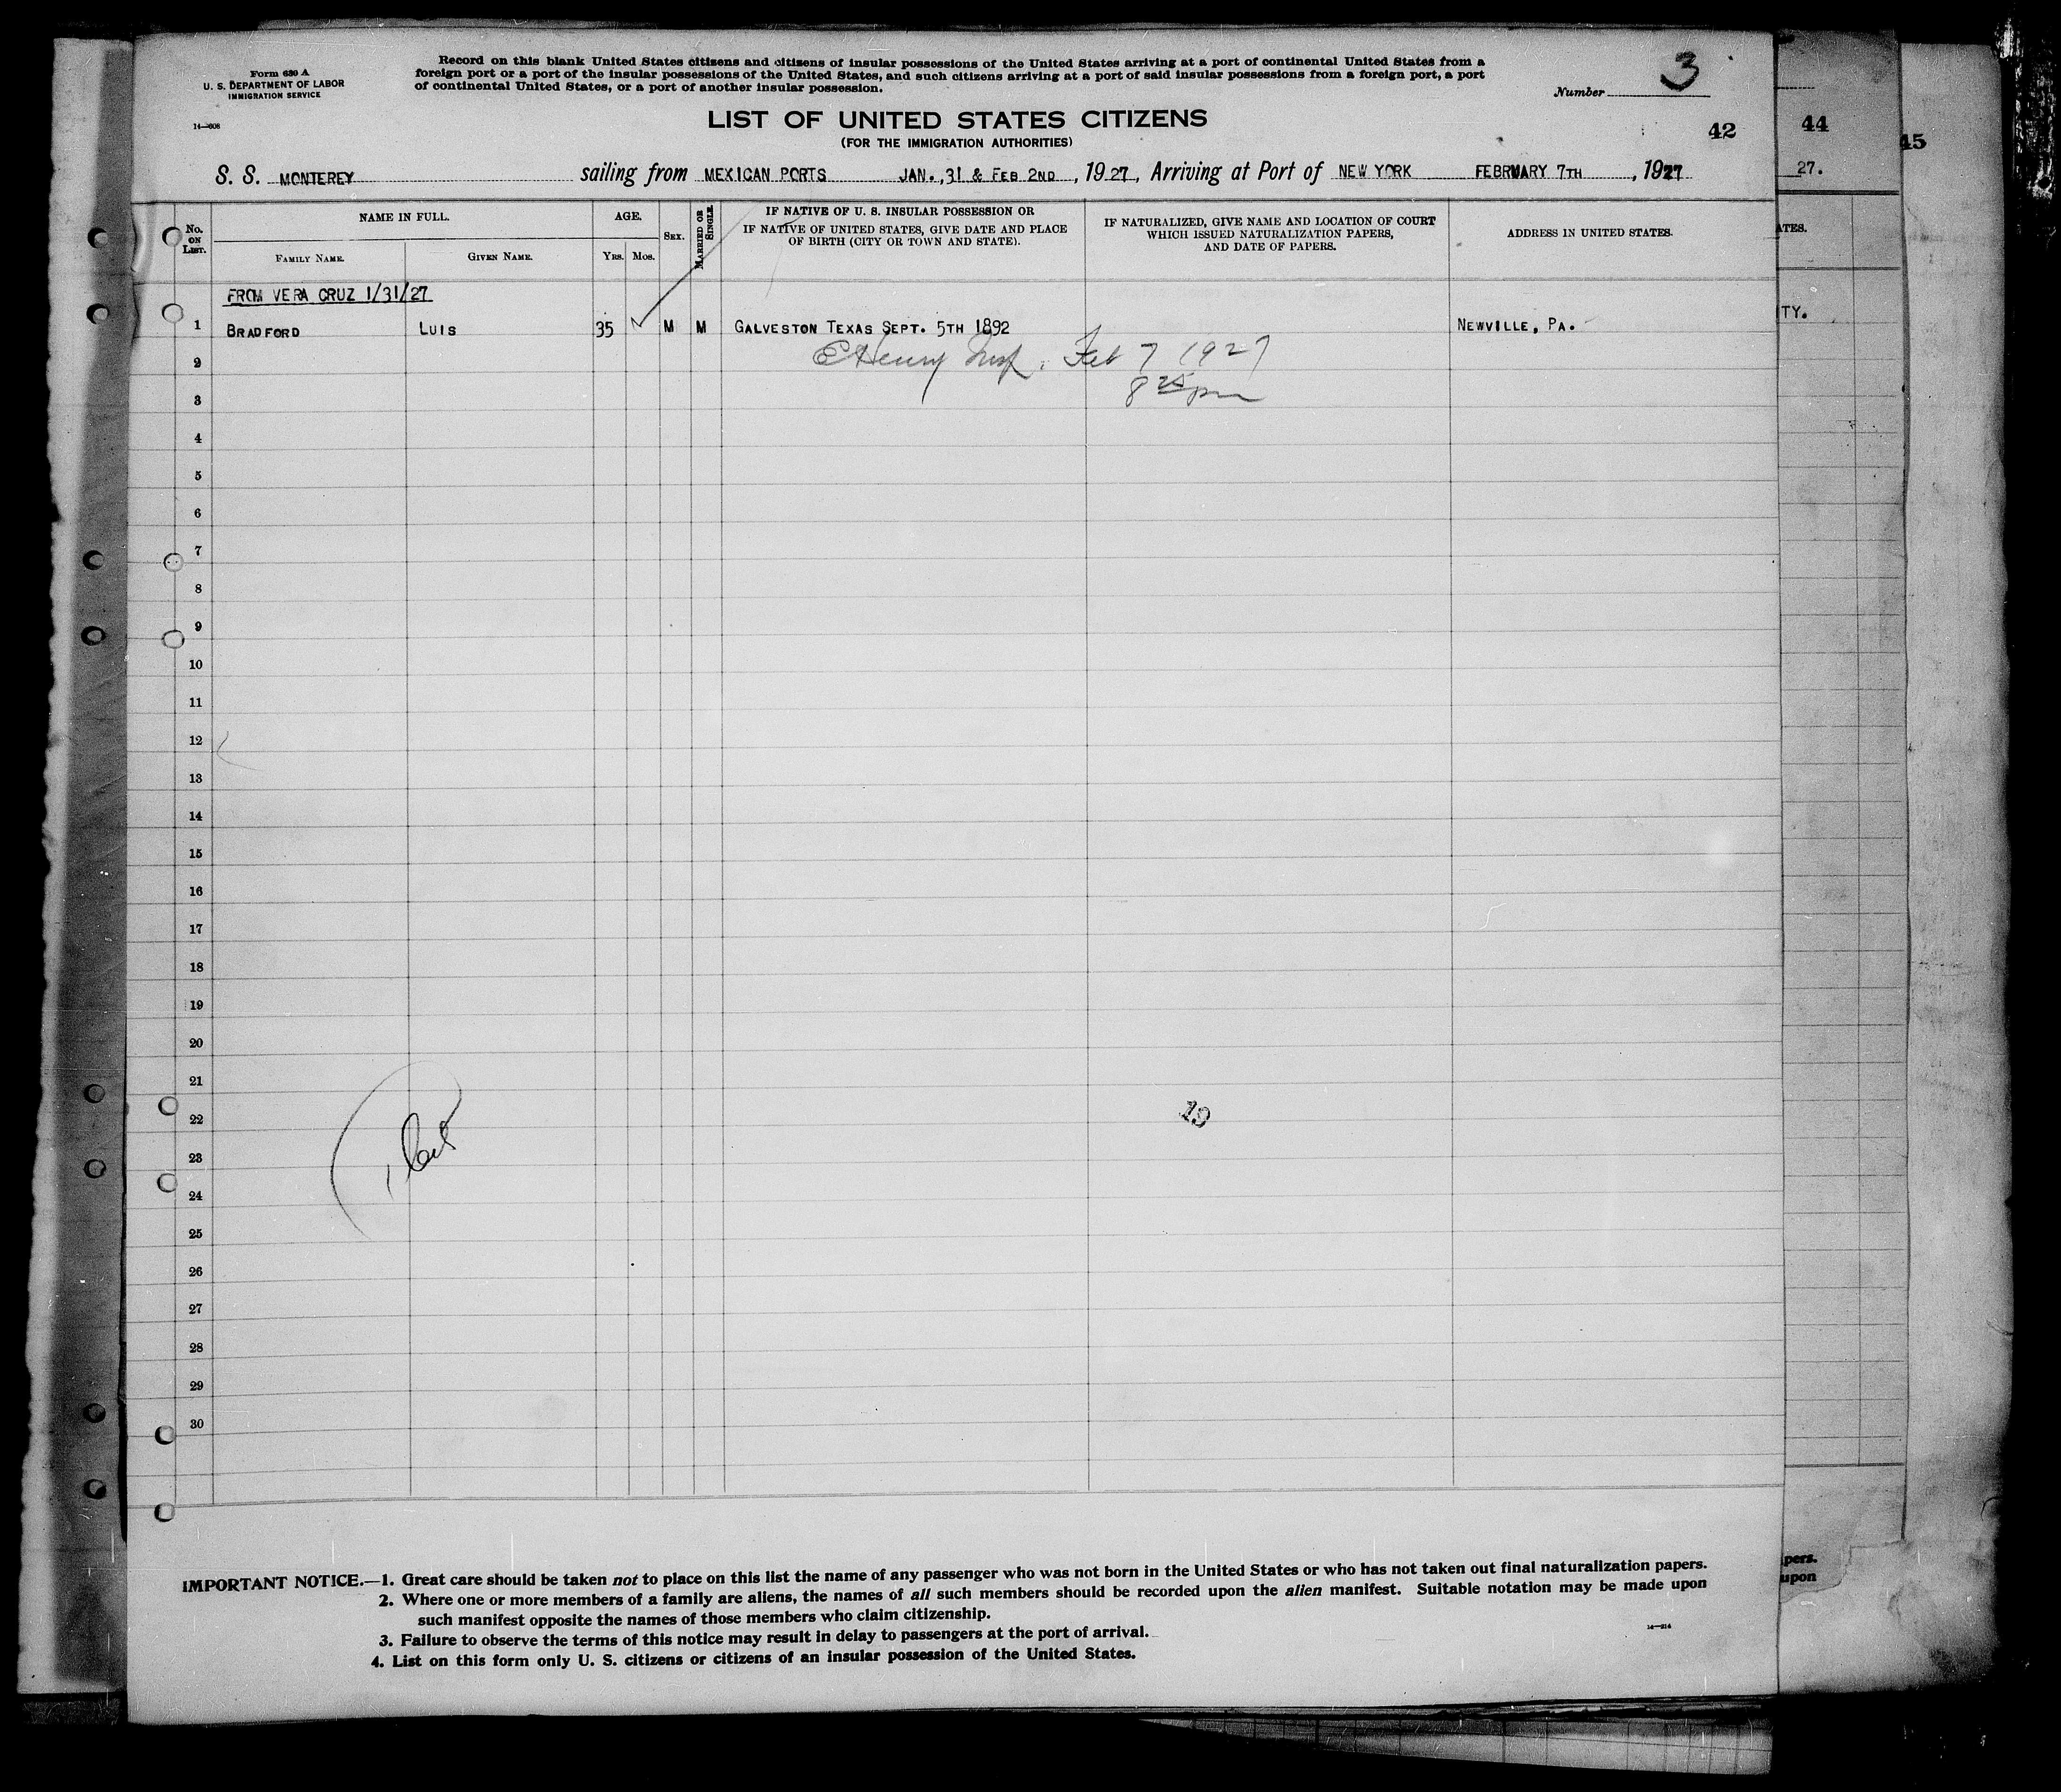 Form 630 A
U. S. DEPARTMENT OF LABOR
IMMIGRATION SERVICE
14—608
Record on this blank United States citizens and citizens of insular possessions of the United States arriving at a port of continental United States from a
foreign port or a port of the insular possessions of the United States, and such citizens arriving at a port of said insular possessions from a foreign port, a port
of continental United States, or a port of another insular possession.
Number 3
LIST OF UNITED STATES CITIZENS
(FOR THE IMMIGRATION AUTHORITIES)
42
44
45
S. S. MONTEREY sailing from MEXICAN PORTS JAN., 31 & FEB 2ND, 1927, Arriving at Port of NEW YORK FEBRUARY 7TH, 1927
27.
No. ON LIST.
NAME IN FULL.
FAMILY NAME.
GIVEN NAME.
AGE.
YRS. MOS.
SEX.
MARRIED OR SINGLE.
IF NATIVE OF U. S. INSULAR POSSESSION OR
IF NATIVE OF UNITED STATES, GIVE DATE AND PLACE
OF BIRTH (CITY OR TOWN AND STATE).
IF NATURALIZED, GIVE NAME AND LOCATION OF COURT
WHICH ISSUED NATURALIZATION PAPERS,
AND DATE OF PAPERS.
ADDRESS IN UNITED STATES.
ATES.
FROM VERA CRUZ 1/31/27
TY.
1 BRADFORD LUIS 35 M M GALVESTON TEXAS SEPT. 5TH 1892 NEWVILLE, PA.
Henry Insp. Feb 7 1927
2
8 25 pm
3
4
5
6
7
8
9
10
11
12
13
14
15
16
17
18
19
20
21
22
19
23
24
25
26
27
28
29
30
IMPORTANT NOTICE.—1. Great care should be taken not to place on this list the name of any passenger who was not born in the United States or who has not taken out final naturalization papers.
2. Where one or more members of a family are aliens, the names of all such members should be recorded upon the alien manifest. Suitable notation may be made upon
such manifest opposite the names of those members who claim citizenship.
3. Failure to observe the terms of this notice may result in delay to passengers at the port of arrival.
4. List on this form only U. S. citizens or citizens of an insular possession of the United States.
14—214
pers.
upon